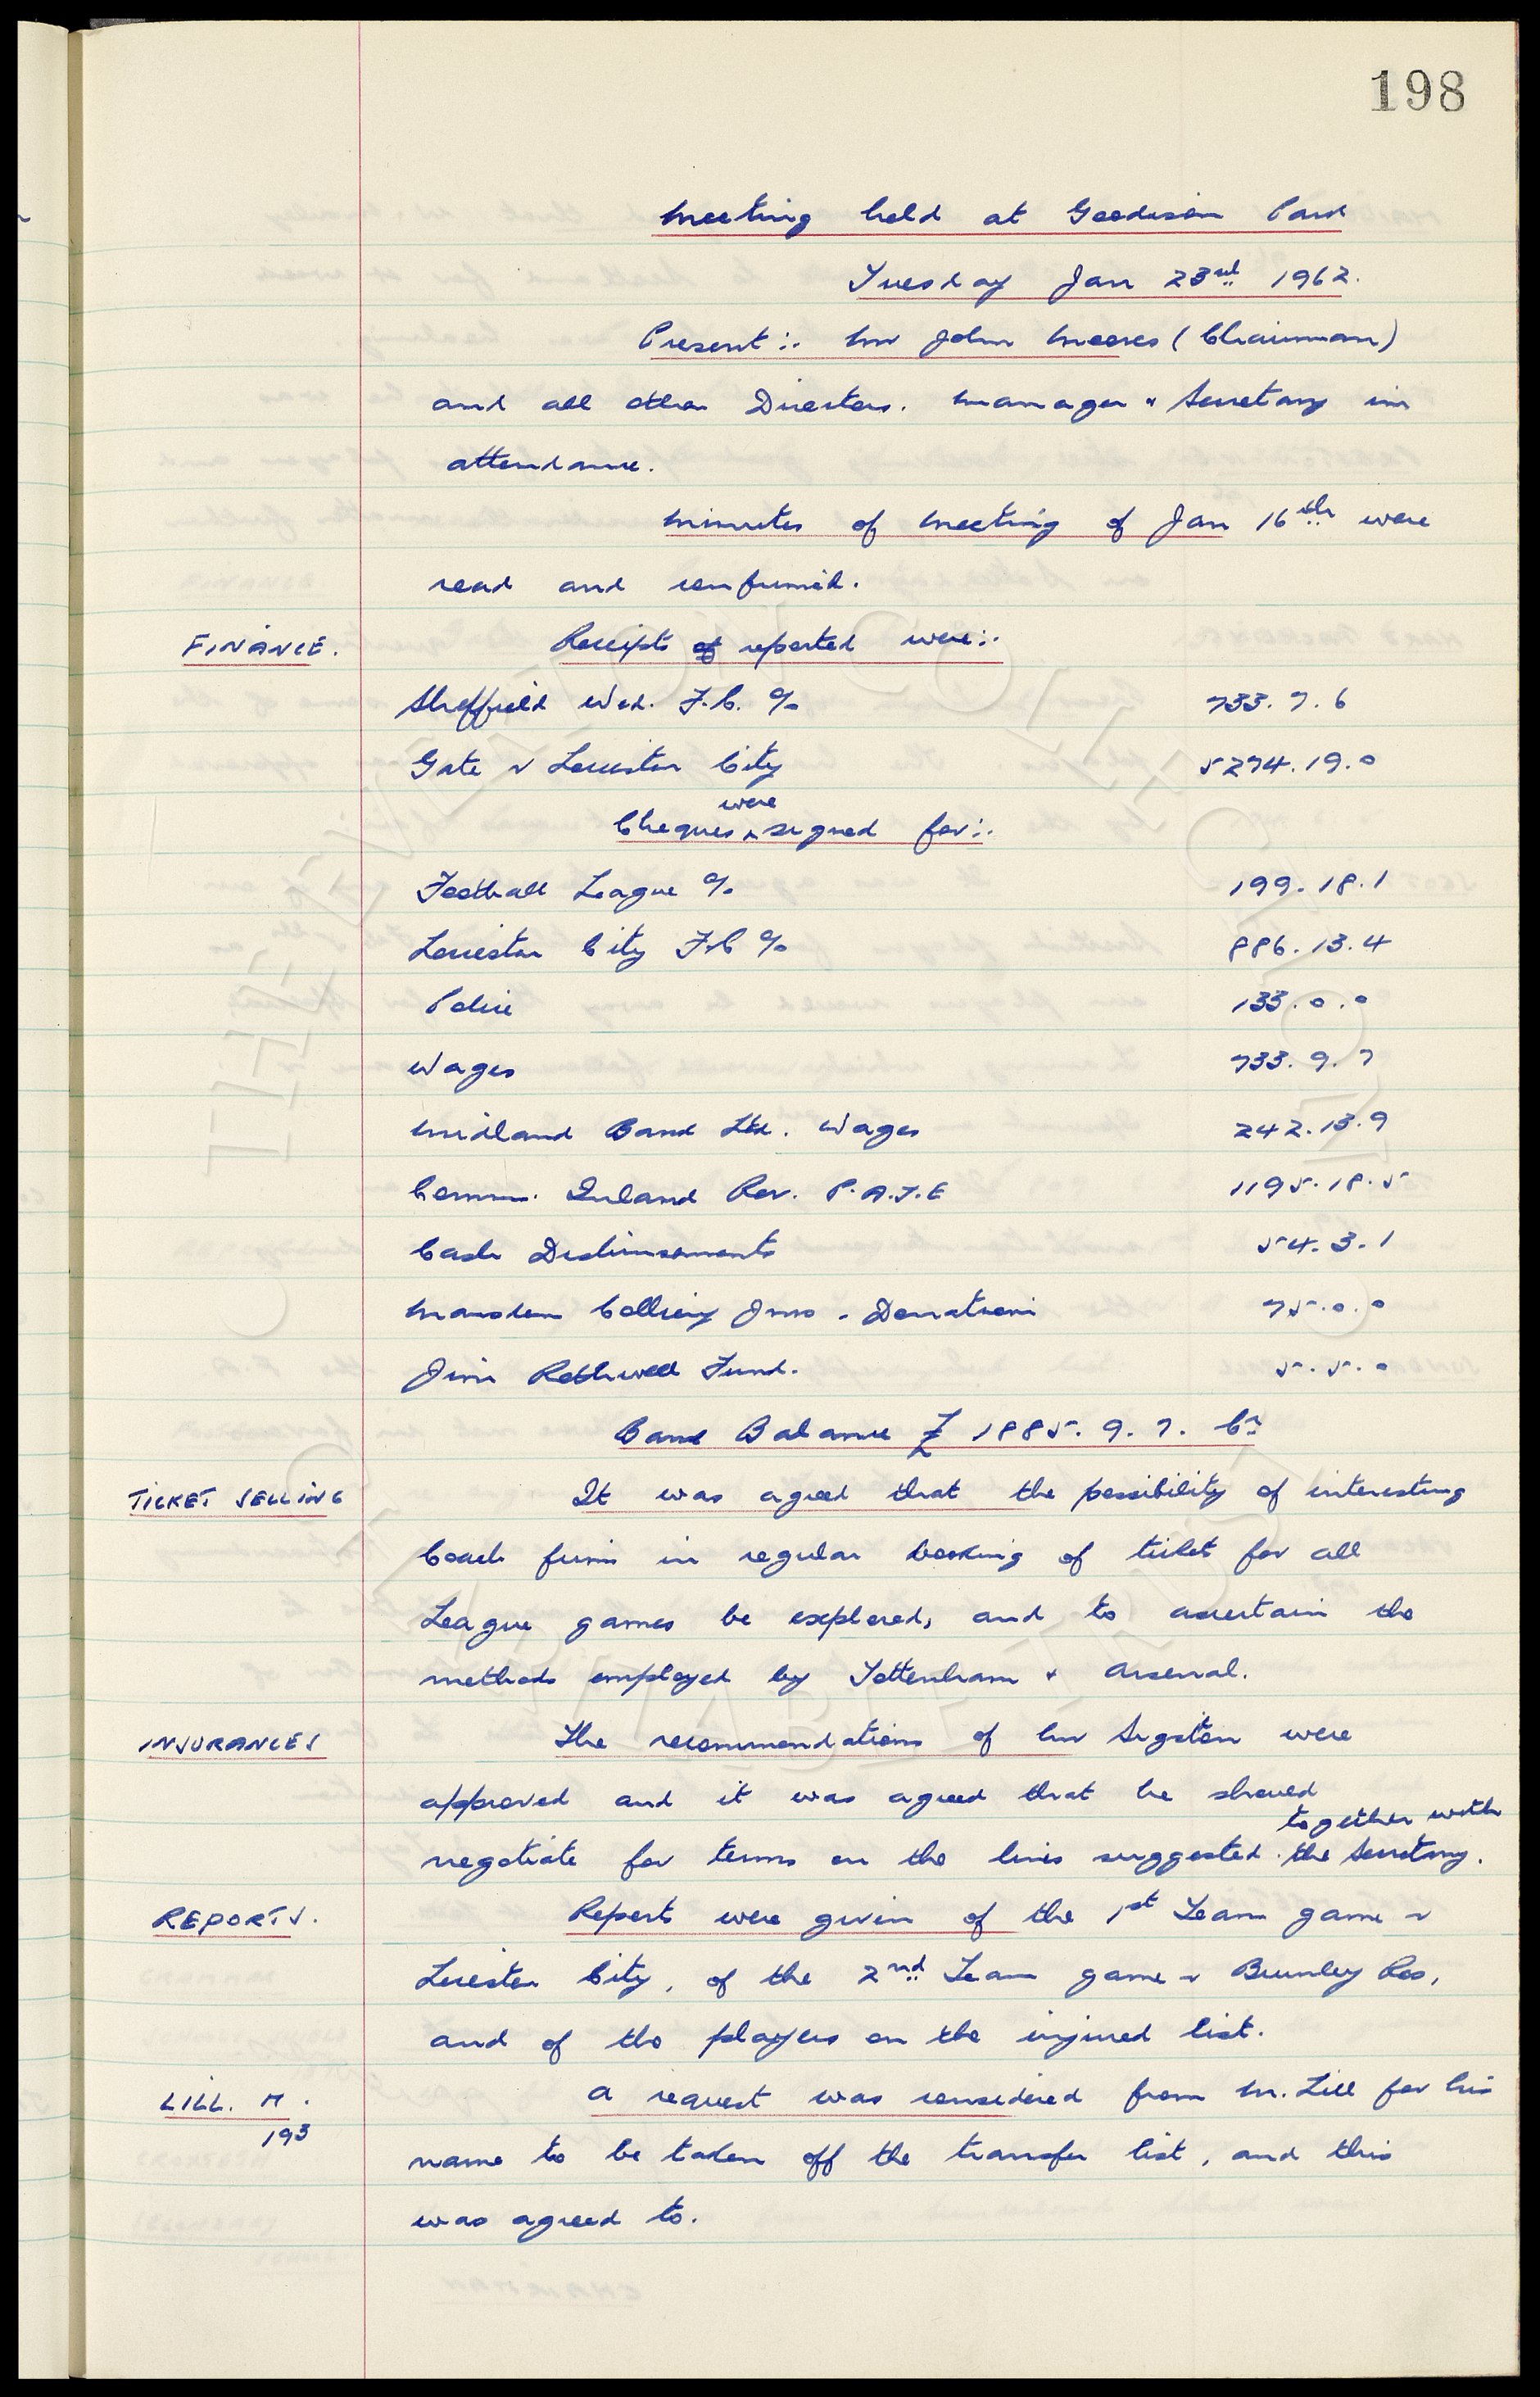 198
Meeting held at Goodison Park
Tuesday Jan 23rd 1962.
Present:. Mr John Moores (Chairman)
and all other Directors. Manager & Secretary in
attendance.
Minutes of meeting of Jan 16th were
read and confirmed.
FINANCE. Receipts of reported were:.
Sheffield Wed. F.C. % 733. 7. 6
Gate v Leicester City 5274. 19. 0
were
Cheques ^ signed for:.
Football League % 199. 18. 1
Leicester City F.C % 886. 13. 4
Police 133. 0. 0
Wages 733. 9. 7
Midland Bank Ltd. Wages 242. 13. 9
Comm. Inland Rev. P.A.Y.E 1195. 18. 5
Cash Disbursements 54. 3. 1
Colliery - Donation 75. 0. 0
Jim Rothwell Fund. 5. 5. 0
Bank Balance £ 1885. 9. 7. Cr
TICKET SELLING It was agreed that the possibility of interesting
Coach firms in regular booking of ticket for all
League games be explored, and to ascertain the
methods employed by Tottenham & Arsenal.
INSURANCES The recommendations of Mr Sigston were
approved and it was agreed that he should
together with
negotiate for terms on the lines suggested. the Secretary.
REPORTS. Reports were given of the 1st Team game v
Leicester City, of the 2nd Team game v Burnley Res,
and of the players on the injured list.
LILL. M. A request was considered from M. Lill for his
193
name to be taken off the transfer list, and this
was agreed to.